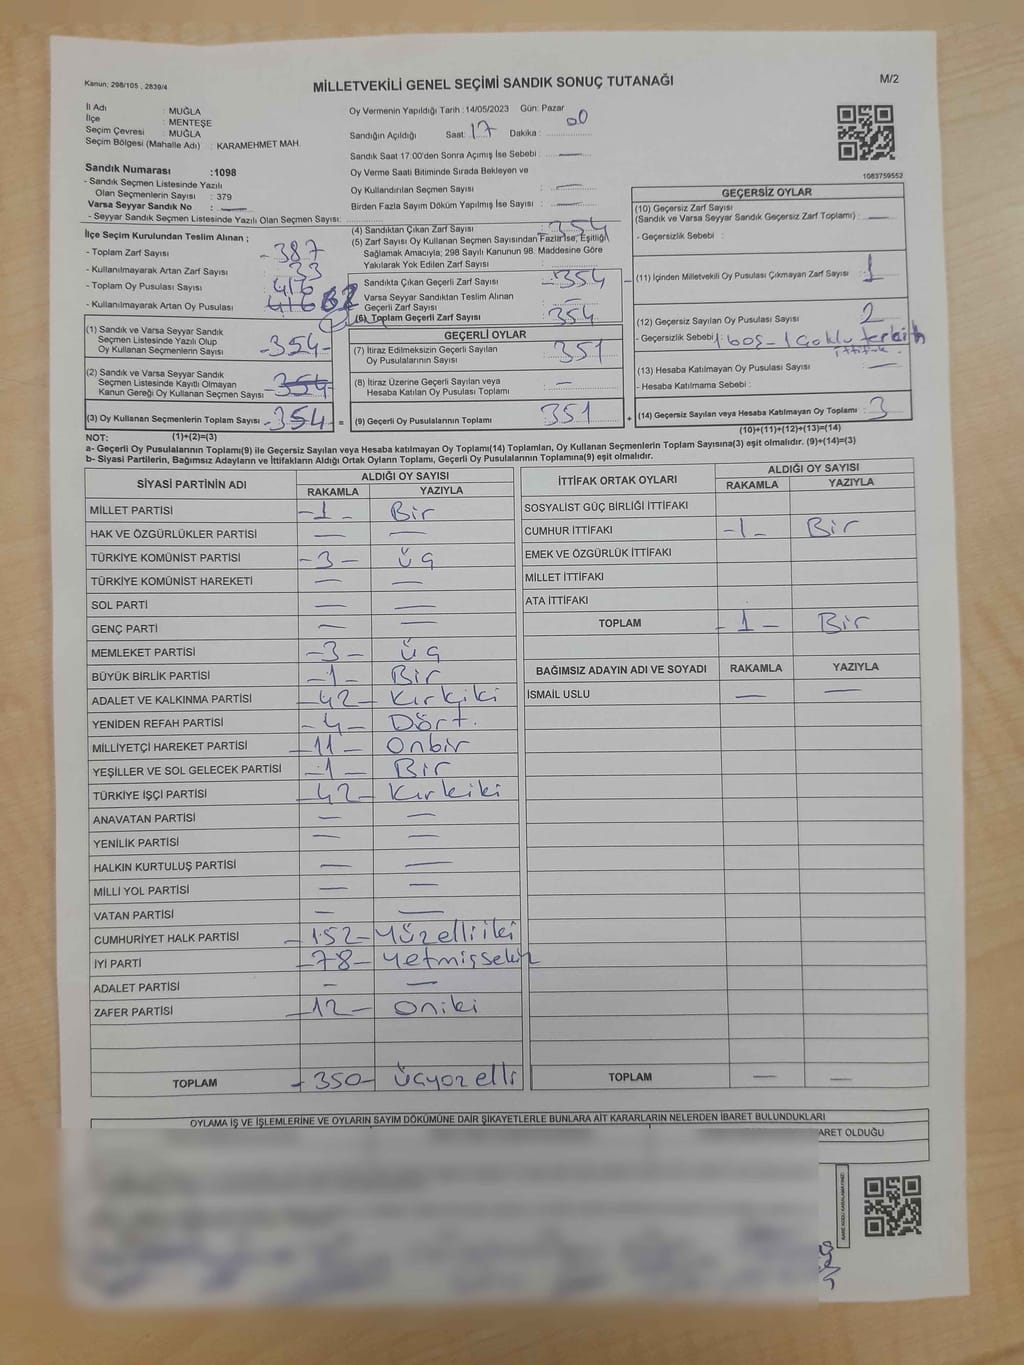 Kanun; 298/105 , 2839/4
MİLLETVEKİLİ GENEL SEÇİMİ SANDIK SONUÇ TUTANAĞI
M/2
İl Adı : MUĞLA
İlçe : MENTEŞE
Seçim Çevresi : MUĞLA
Seçim Bölgesi (Mahalle Adı) : KARAMEHMET MAH.
Sandık Numarası :1098
- Sandık Seçmen Listesinde Yazılı
Olan Seçmenlerin Sayısı : 379
Varsa Seyyar Sandık No : —
- Seyyar Sandık Seçmen Listesinde Yazılı Olan Seçmen Sayısı:
Oy Vermenin Yapıldığı Tarih : 14/05/2023 Gün: Pazar
Sandığın Açıldığı Saat: 17 Dakika : 00
Sandık Saat 17.00'den Sonra Açımış İse Sebebi : —
Oy Verme Saati Bitiminde Sırada Bekleyen ve
Oy Kullandırılan Seçmen Sayısı : —
Birden Fazla Sayım Döküm Yapılmış İse Sayısı : —
1083759552
İlçe Seçim Kurulundan Teslim Alınan ;
- Toplam Zarf Sayısı - 387
- Kullanılmayarak Artan Zarf Sayısı : 33
- Toplam Oy Pusulası Sayısı : 416
- Kullanılmayarak Artan Oy Pusulası : 416 62
(1) Sandık ve Varsa Seyyar Sandık
Seçmen Listesinde Yazılı Olup
Oy Kullanan Seçmenlerin Sayısı -354-
(2) Sandık ve Varsa Seyyar Sandık
Seçmen Listesinde Kayıtlı Olmayan
Kanun Gereği Oy Kullanan Seçmen Sayısı -354-
(3) Oy Kullanan Seçmenlerin Toplam Sayısı -354 =
(4) Sandıktan Çıkan Zarf Sayısı : 354
(5) Zarf Sayısı Oy Kullanan Seçmen Sayısından Fazla İse, Eşitliği
Sağlamak Amacıyla; 298 Sayılı Kanunun 98. Maddesine Göre
Yakılarak Yok Edilen Zarf Sayısı
Sandıkta Çıkan Geçerli Zarf Sayısı - 354 -
Varsa Seyyar Sandıktan Teslim Alınan
Geçerli Zarf Sayısı —
(6) Toplam Geçerli Zarf Sayısı 354
GEÇERLİ OYLAR
(7) İtiraz Edilmeksizin Geçerli Sayılan
Oy Pusulalarının Sayısı 351
(8) İtiraz Üzerine Geçerli Sayılan veya
Hesaba Katılan Oy Pusulası Toplamı —
(9) Geçerli Oy Pusulalarının Toplamı 351 +
GEÇERSİZ OYLAR
(10) Geçersiz Zarf Sayısı
(Sandık ve Varsa Seyyar Sandık Geçersiz Zarf Toplamı) : —
- Geçersizlik Sebebi :
(11) İçinden Milletvekili Oy Pusulası Çıkmayan Zarf Sayısı : 1
(12) Geçersiz Sayılan Oy Pusulası Sayısı : 2
- Geçersizlik Sebebi : 1 boş - 1 çoklu tercih
ittifak.
(13) Hesaba Katılmayan Oy Pusulası Sayısı : —
- Hesaba Katılmama Sebebi :
(14) Geçersiz Sayılan veya Hesaba Katılmayan Oy Toplamı : 3
NOT: (1)+(2)=(3)
(10)+(11)+(12)+(13)=(14)
a- Geçerli Oy Pusulalarının Toplamı(9) ile Geçersiz Sayılan veya Hesaba katılmayan Oy Toplamı(14) Toplamları, Oy Kullanan Seçmenlerin Toplam Sayısına(3) eşit olmalıdır. (9)+(14)=(3)
b- Siyasi Partilerin, Bağımsız Adayların ve İttifakların Aldığı Ortak Oyların Toplamı, Geçerli Oy Pusulalarının Toplamına(9) eşit olmalıdır.
SİYASİ PARTİNİN ADI ALDIĞI OY SAYISI
RAKAMLA YAZIYLA
MİLLET PARTİSİ -1- Bir
HAK VE ÖZGÜRLÜKLER PARTİSİ — —
TÜRKİYE KOMÜNİST PARTİSİ -3- Üç
TÜRKİYE KOMÜNİST HAREKETİ — —
SOL PARTİ — —
GENÇ PARTİ — —
MEMLEKET PARTİSİ -3- Üç
BÜYÜK BİRLİK PARTİSİ -1- Bir
ADALET VE KALKINMA PARTİSİ -42- Kırkiki
YENİDEN REFAH PARTİSİ -4- Dört.
MİLLİYETÇİ HAREKET PARTİSİ -11- Onbir
YEŞİLLER VE SOL GELECEK PARTİSİ -1- Bir
TÜRKİYE İŞÇİ PARTİSİ -42- Kırkiki
ANAVATAN PARTİSİ — —
YENİLİK PARTİSİ — —
HALKIN KURTULUŞ PARTİSİ — —
MİLLİ YOL PARTİSİ — —
VATAN PARTİSİ — —
CUMHURİYET HALK PARTİSİ -152- Yüzelliiki
İYİ PARTİ -78- Yetmişsekiz
ADALET PARTİSİ — —
ZAFER PARTİSİ -12- Oniki
TOPLAM -350- Üçyüzelli
İTTİFAK ORTAK OYLARI ALDIĞI OY SAYISI
RAKAMLA YAZIYLA
SOSYALİST GÜÇ BİRLİĞİ İTTİFAKI
CUMHUR İTTİFAKI -1- Bir
EMEK VE ÖZGÜRLÜK İTTİFAKI
MİLLET İTTİFAKI
ATA İTTİFAKI
TOPLAM -1- Bir
BAĞIMSIZ ADAYIN ADI VE SOYADI RAKAMLA YAZIYLA
İSMAİL USLU — —
TOPLAM — —
OYLAMA İŞ VE İŞLEMLERİNE VE OYLARIN SAYIM DÖKÜMÜNE DAİR ŞİKAYETLERLE BUNLARA AİT KARARLARIN NELERDEN İBARET BULUNDUKLARI
ARET OLDUĞU